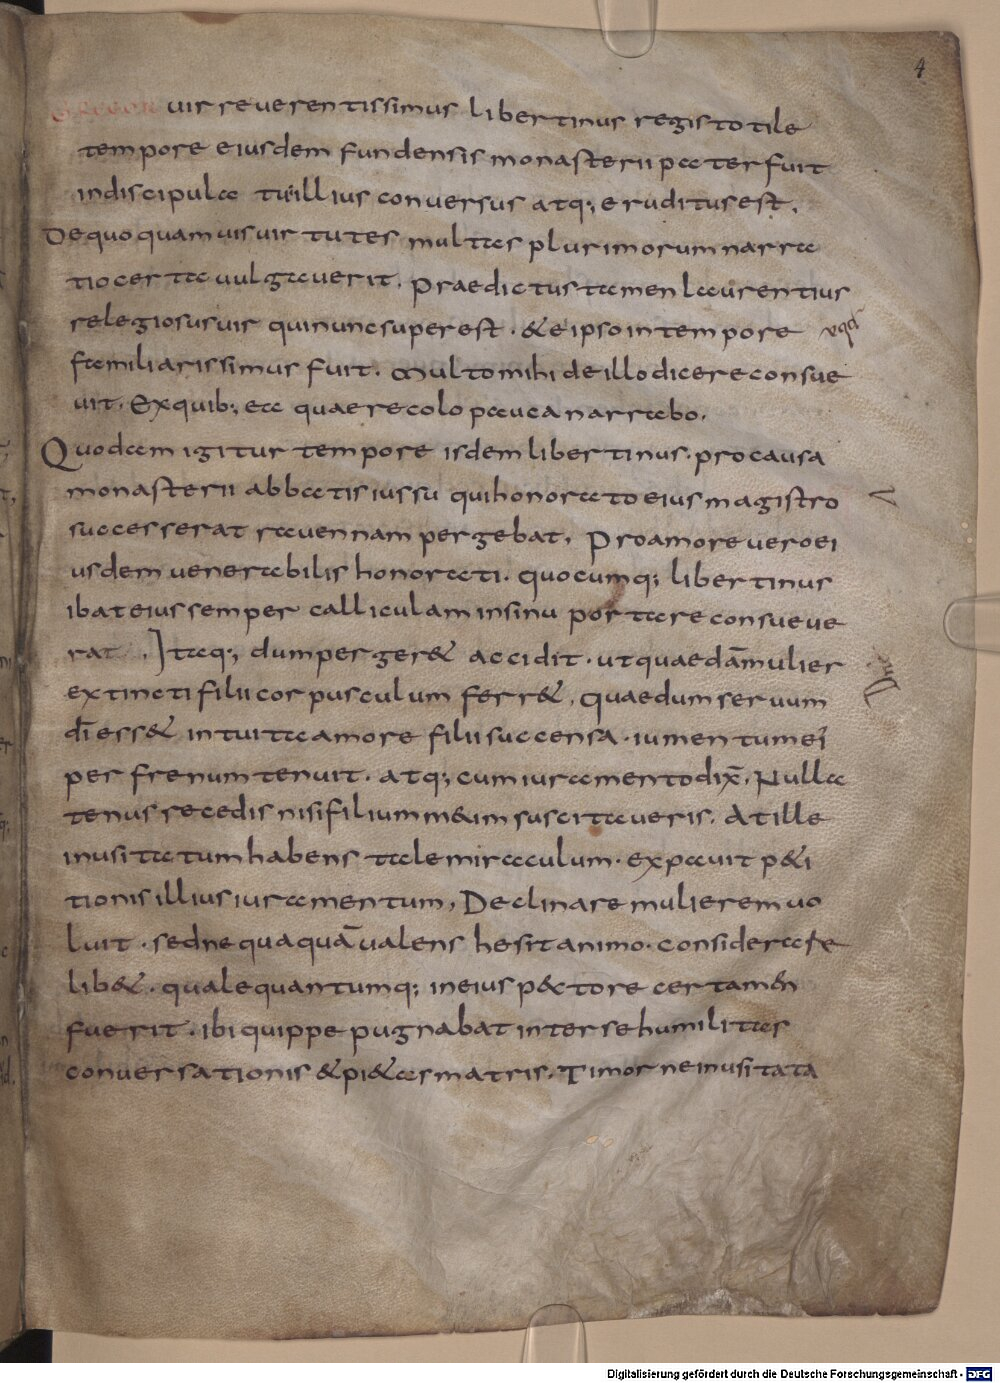 4
GREGOR vir reverentissimus libertinus regis totile
tempore eiusdem fundensis monasterii pater fuit
indiscipulatu illius conversus atq; eruditus est.
De quo quamvis virtutes multas plurimorum narra
tio certa vulgaverit. Praedictus tamen laurentius
relegiosus vir qui nunc superest. & ei ipso in tempore
familiarissimus fuit. Multo mihi de illo dicere consue
vit. Ex quib; ea quae recolo pauca narrabo.
Quodam igitur tempore isdem libertinus. pro causa
monasterii abbatis iussu qui honorato eius magistro
successerat ravennam pergebat. Pro amore vero ei
usdem venerabilis honorati. quocumq; libertinus
ibat eius semper calliculam in sinu portare consueve
rat. Itaq; dum perger& accidit. ut quaedā mulier
extincti filii corpusculum ferr&. quae dum servum
dī ess& intuita amore filii succensa. iumentum ei
per frenum tenuit. atq; cum iuramento dix̄. Nulla
tenus recedis nisi filium m&um suscitaveris. At ille
inusitatum habens tale miraculum. expavit p&i
tionis illius iuramentum. Declinare mulierem vo
luit. sed nequaquā valens hesit animo. considerare
lib&. quale quantumq; in eius p&ctore certam&n
fuerit. ibi quippe pugnabat inter se humilitas
conversationis & pi&as matris. Timor ne inusitata
Digitalisierung gefördert durch die Deutsche Forschungsgemeinschaft - DFG